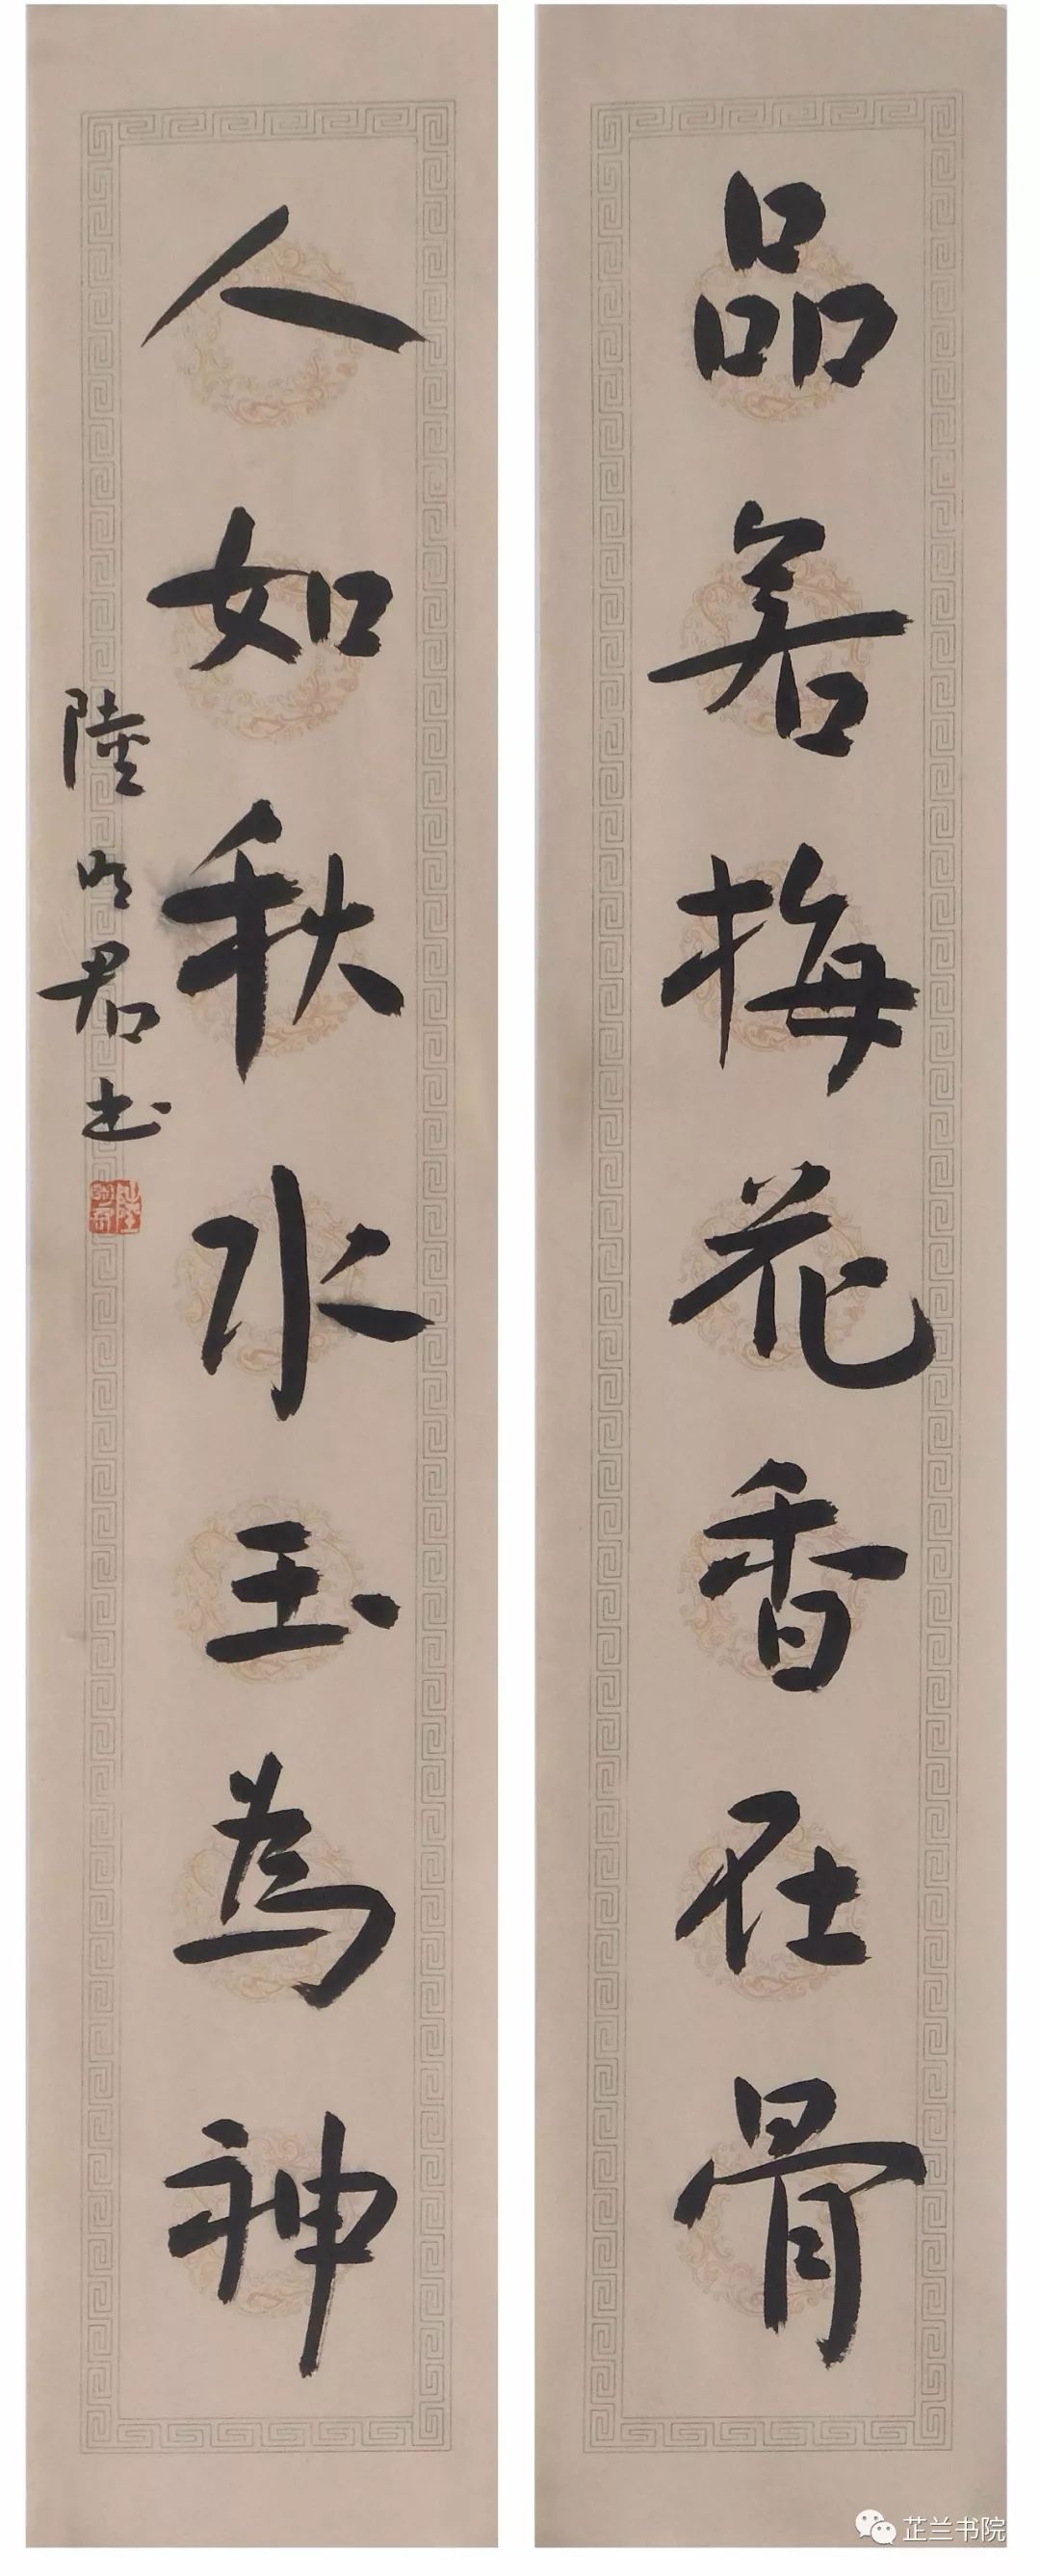 品若梅花香在骨
人如秋水玉為神
陸明君书
芷兰书院